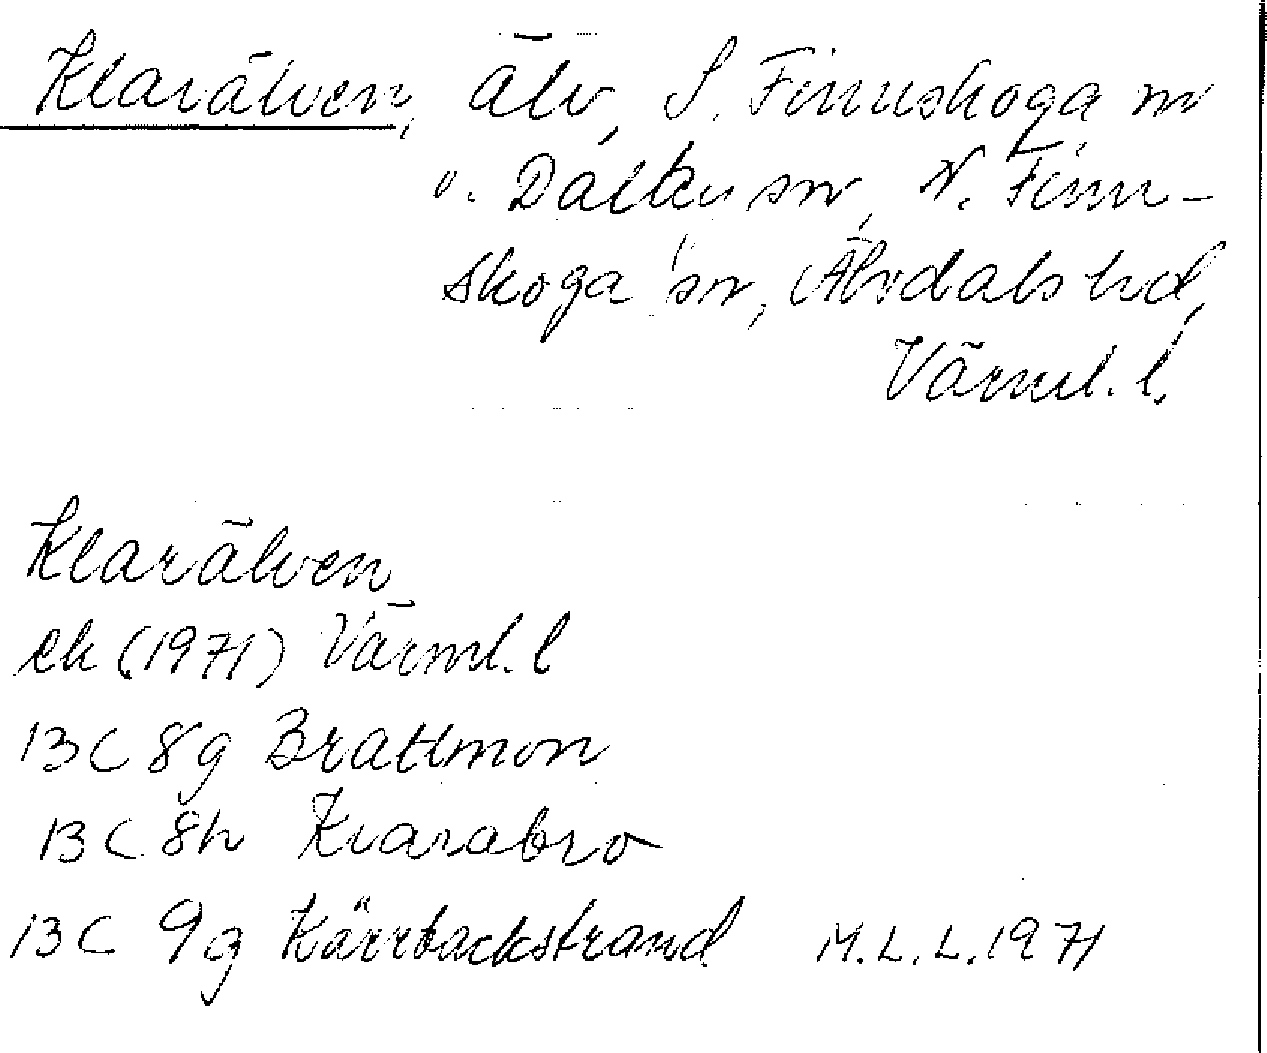 Klarälven, älv, S. Finnskoga sn
o. Dalby sn, N. Finn-
skoga sn, Älvdals hd,
Värml. l.
Klarälven
ek (1971) Värml. l
13 C 8g Brattmon
13 C 8h Klarabro
13 C 9g Kärrbackstrand M.L.L. 1971